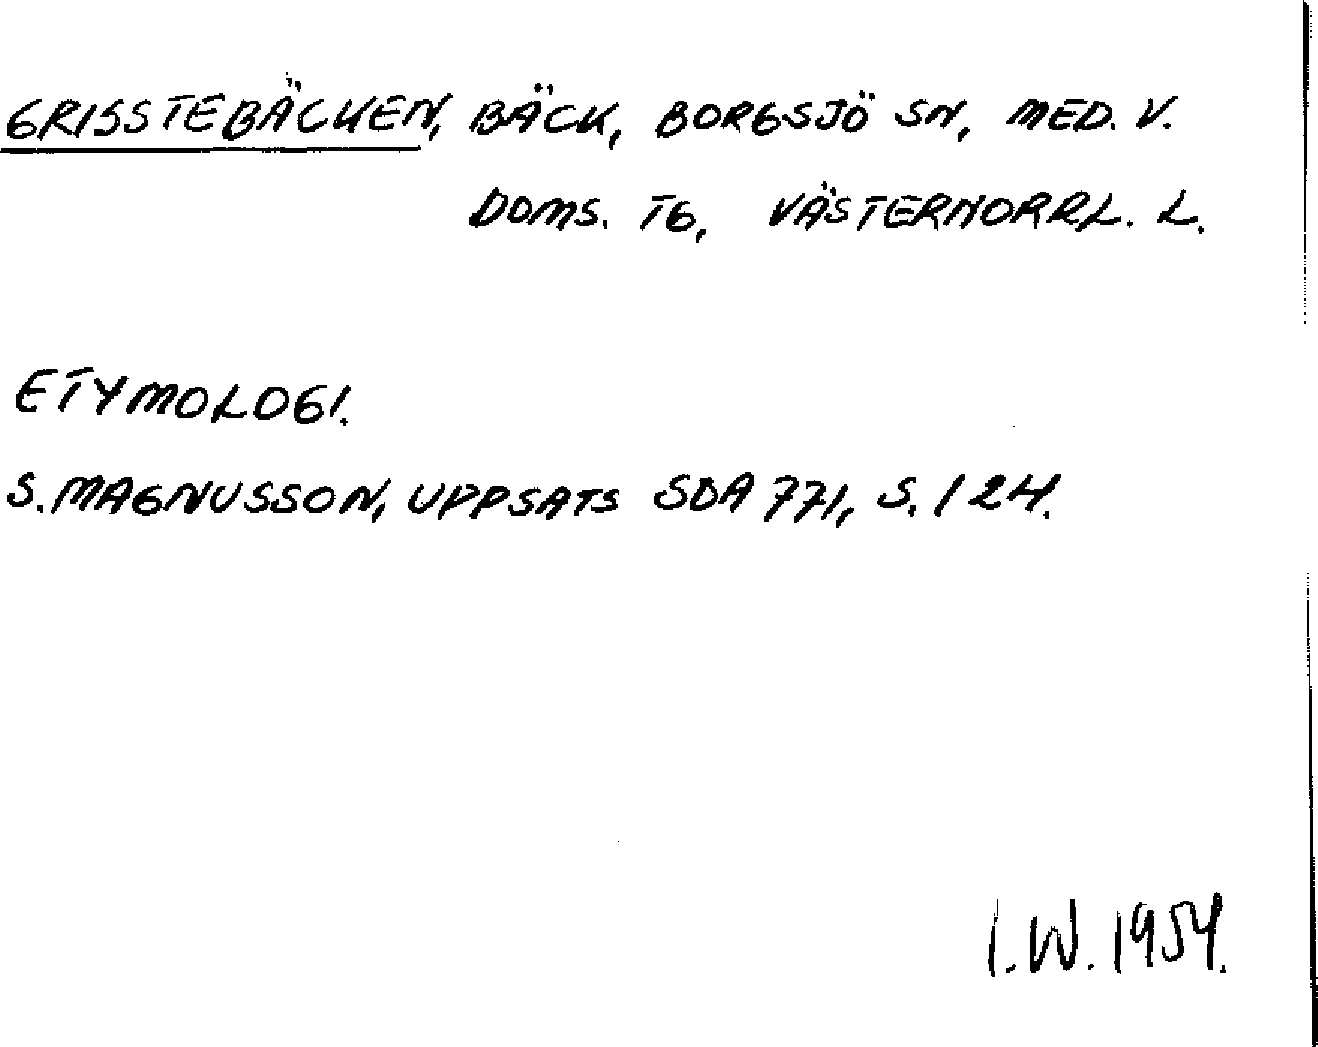 GRISSTEBÄCKEN, BÄCK, BORGSJÖ SN, MED. V.
DOMS. TG, VÄSTERNORRL. L.
ETYMOLOGI.
S. MAGNUSSON, UPPSATS SDA 771, S. 124.
I.W. 1954.